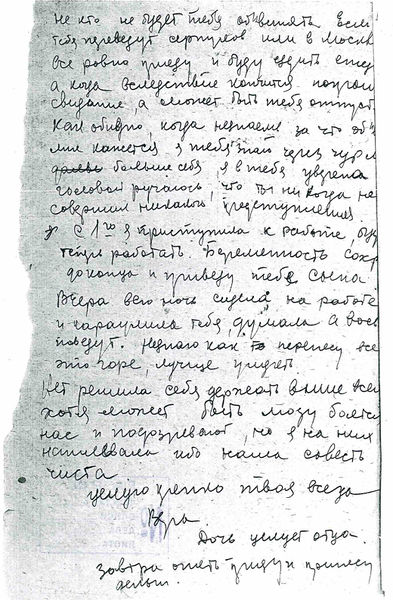 не кто не будет тебя обвинять если
тебя переведут серпухов или в Москв
все ровно приеду и буду ездить еже
а когда вследствие кончится получю
свидание, а может быть тебя отпуст
Как обидно, когда незнаеш за что об
мне кажется я тебя знаю через чур
больше себя, я в тебя уверена
головой ручаюсь, что ты ни когда не
совершил никакого преступления.
С 1го я приступила к работе, буду
работать. Беременность сохр
до конца и привезу тебе сына.
Вчера всю ночь сидела, на работе
и караулила тебя, думала а вось
поведут. Незнаю как перенесу все
это горе, лучше умереть
Нет решила себя держать выше всех
хотя может быть могу боятся
нас и подозревают, но я на них
наплевала ибо наша совесть
чиста
целую крепко твоя всегда
Вера.
Дочь целует отца.
завтра опять приду и принесу
деньги.